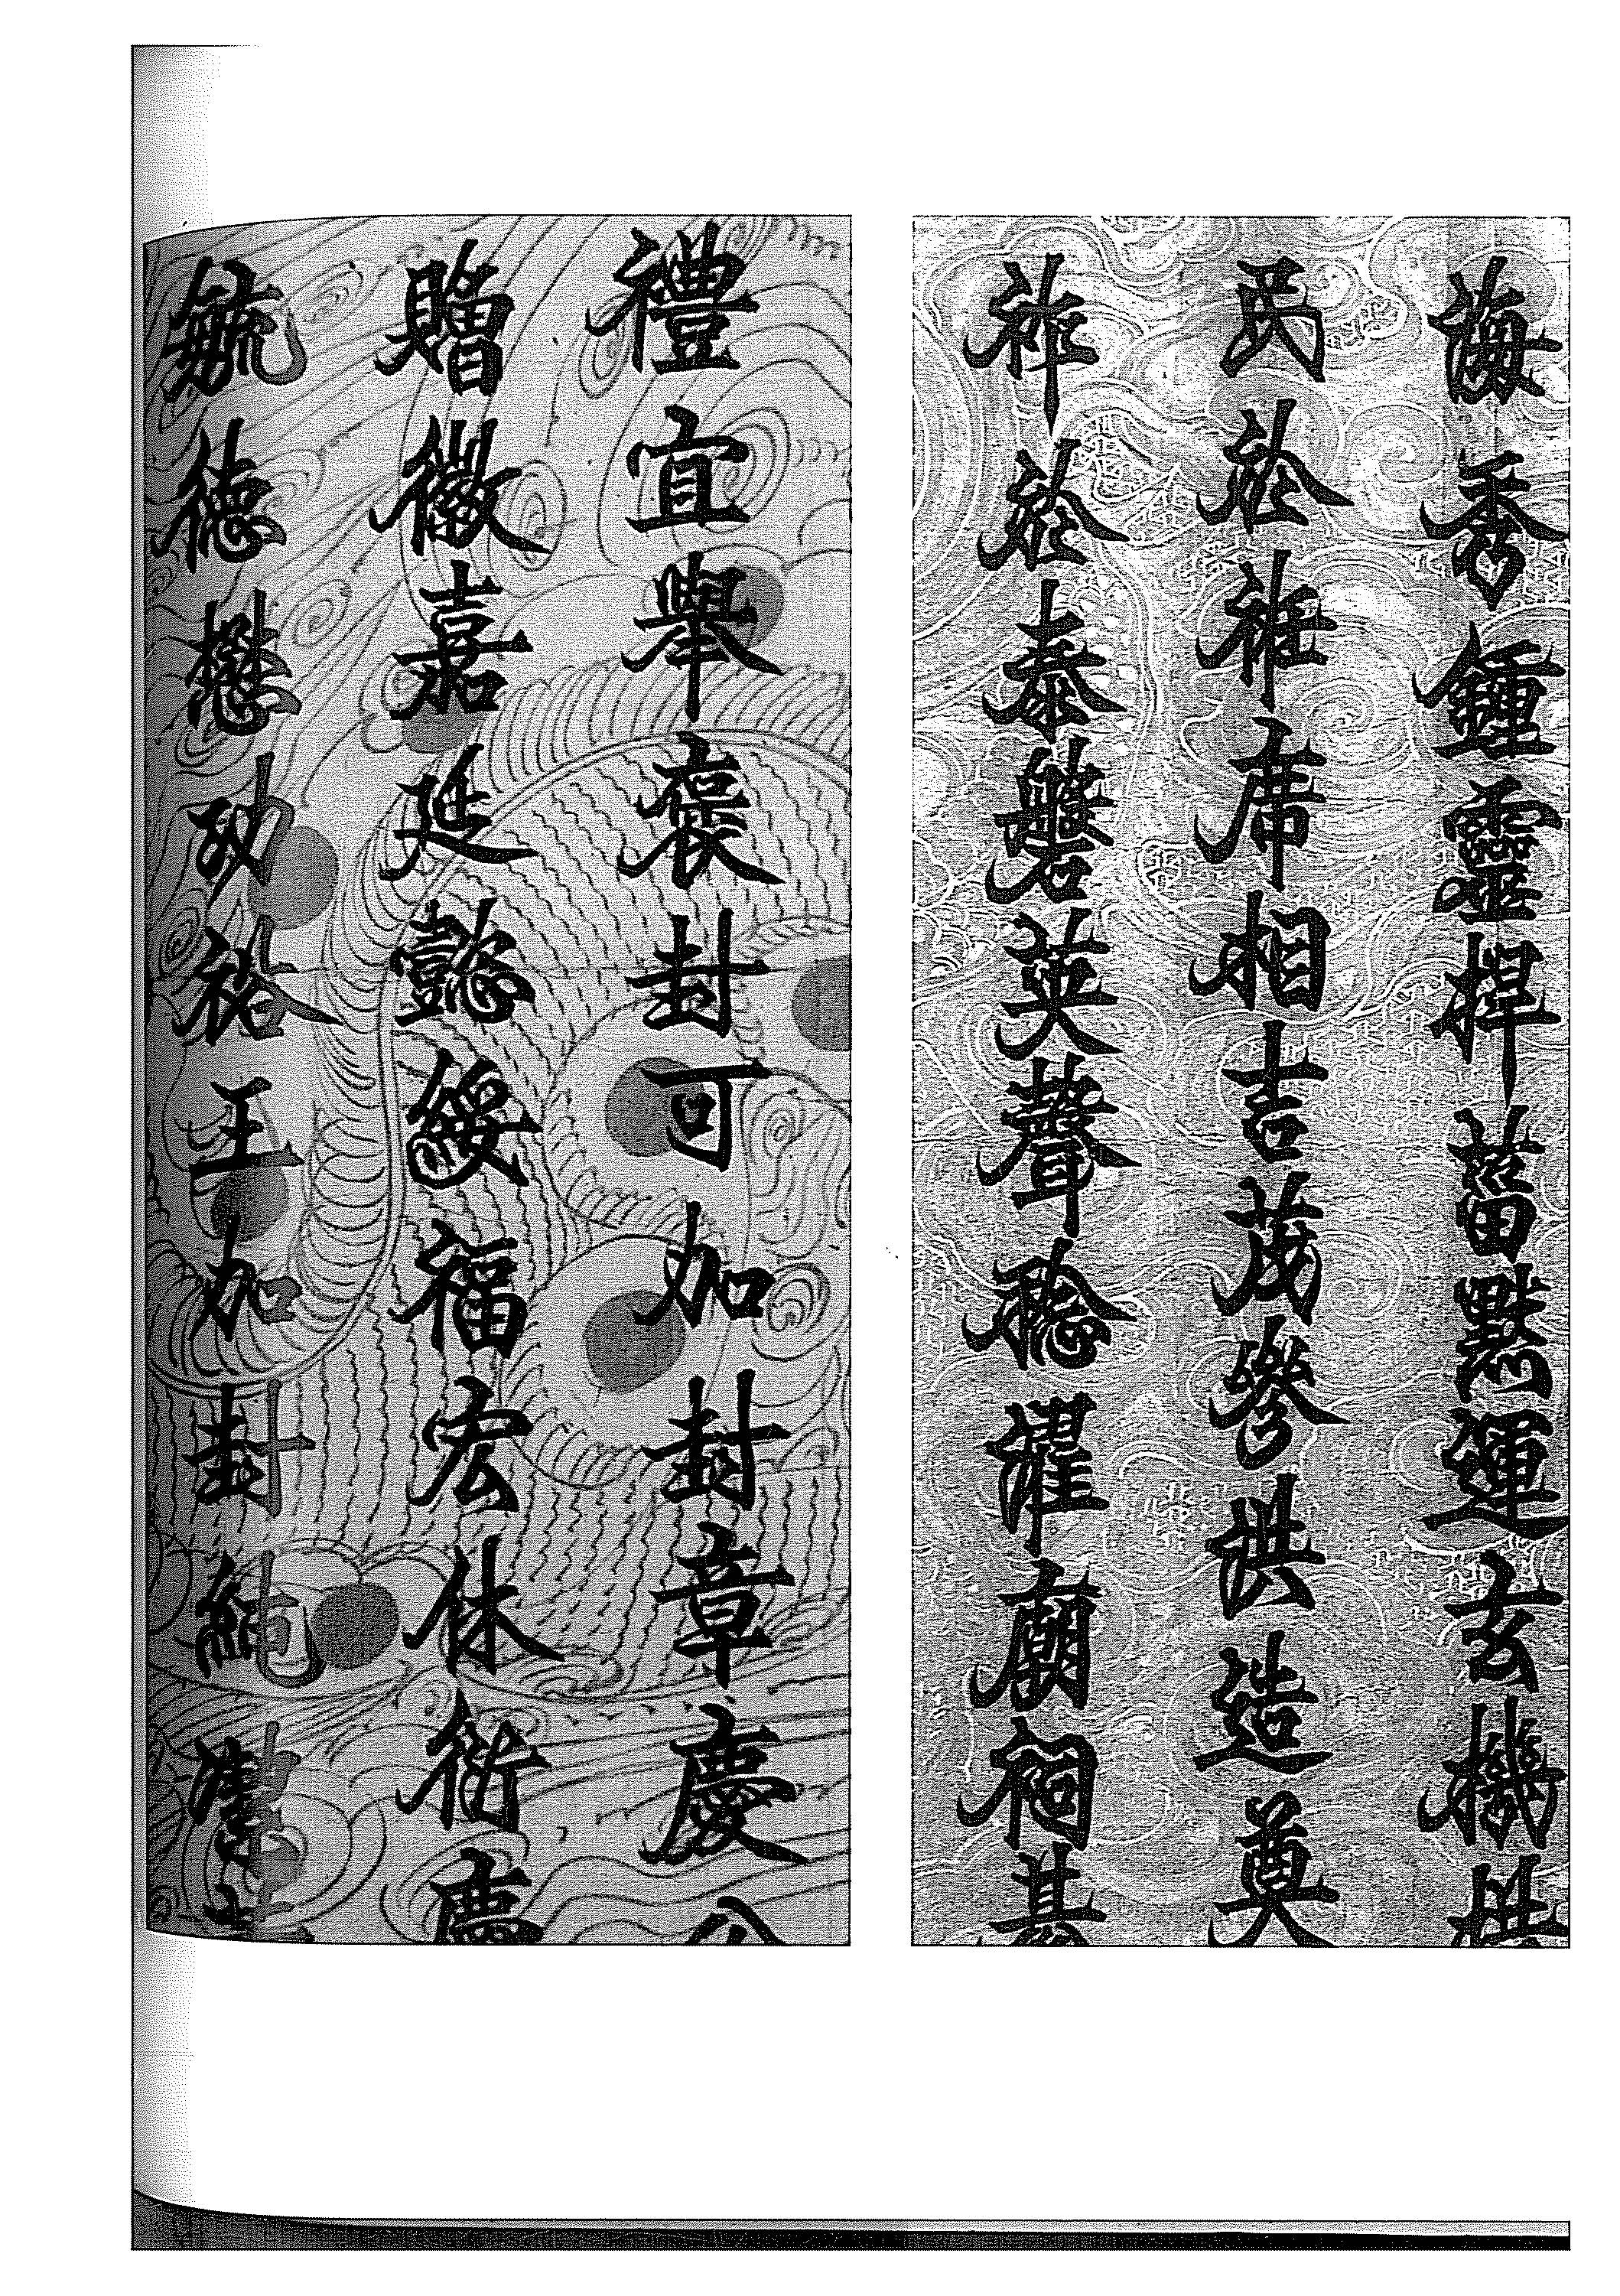 海秀鍾靈捍菑默運玄機拱
民於袵席相吉茂參洪造奠
祚於泰磐英聲稔濯廟祠甚
禮宜舉褒封可加封章慶公
贈徽嘉延懿綏福宏休衍慶
毓德懋功裕王加封純